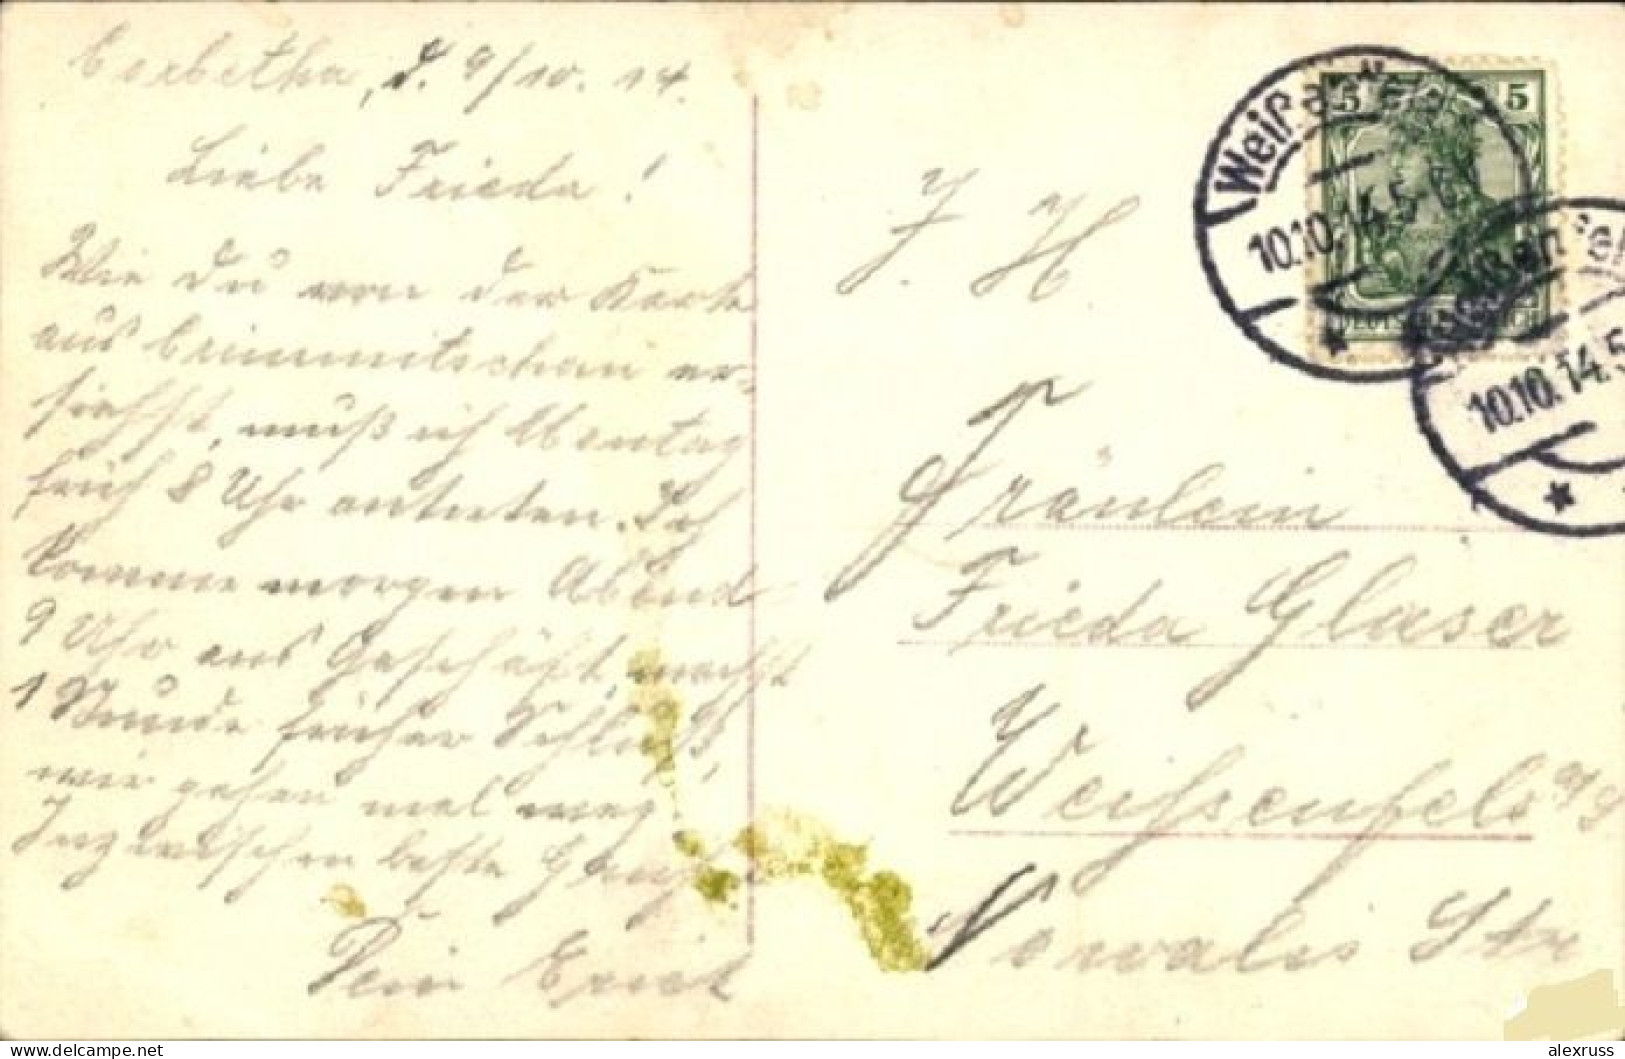 Corbetha, d. 9/10. 14.
Liebe Frieda!
Wie Du von der Karte
aus Crimmitschau er-
siehst, muß ich Montag
früh 8 Uhr antreten. Ich
komme morgen Abend
9 Uhr aus Geschäft, machst
1 Stunde früher Schluß,
wir gehen mal weg.
Inzwischen beste Grüße
Dein Erich
J. H.
Fräulein
Frieda Glaser
Weißenfels a/S
Novalis Str
5 5
DEUTSCHES REICH
Weißenfels
10.10.14.5
Weißenfels
10.10.14.5
alexruss